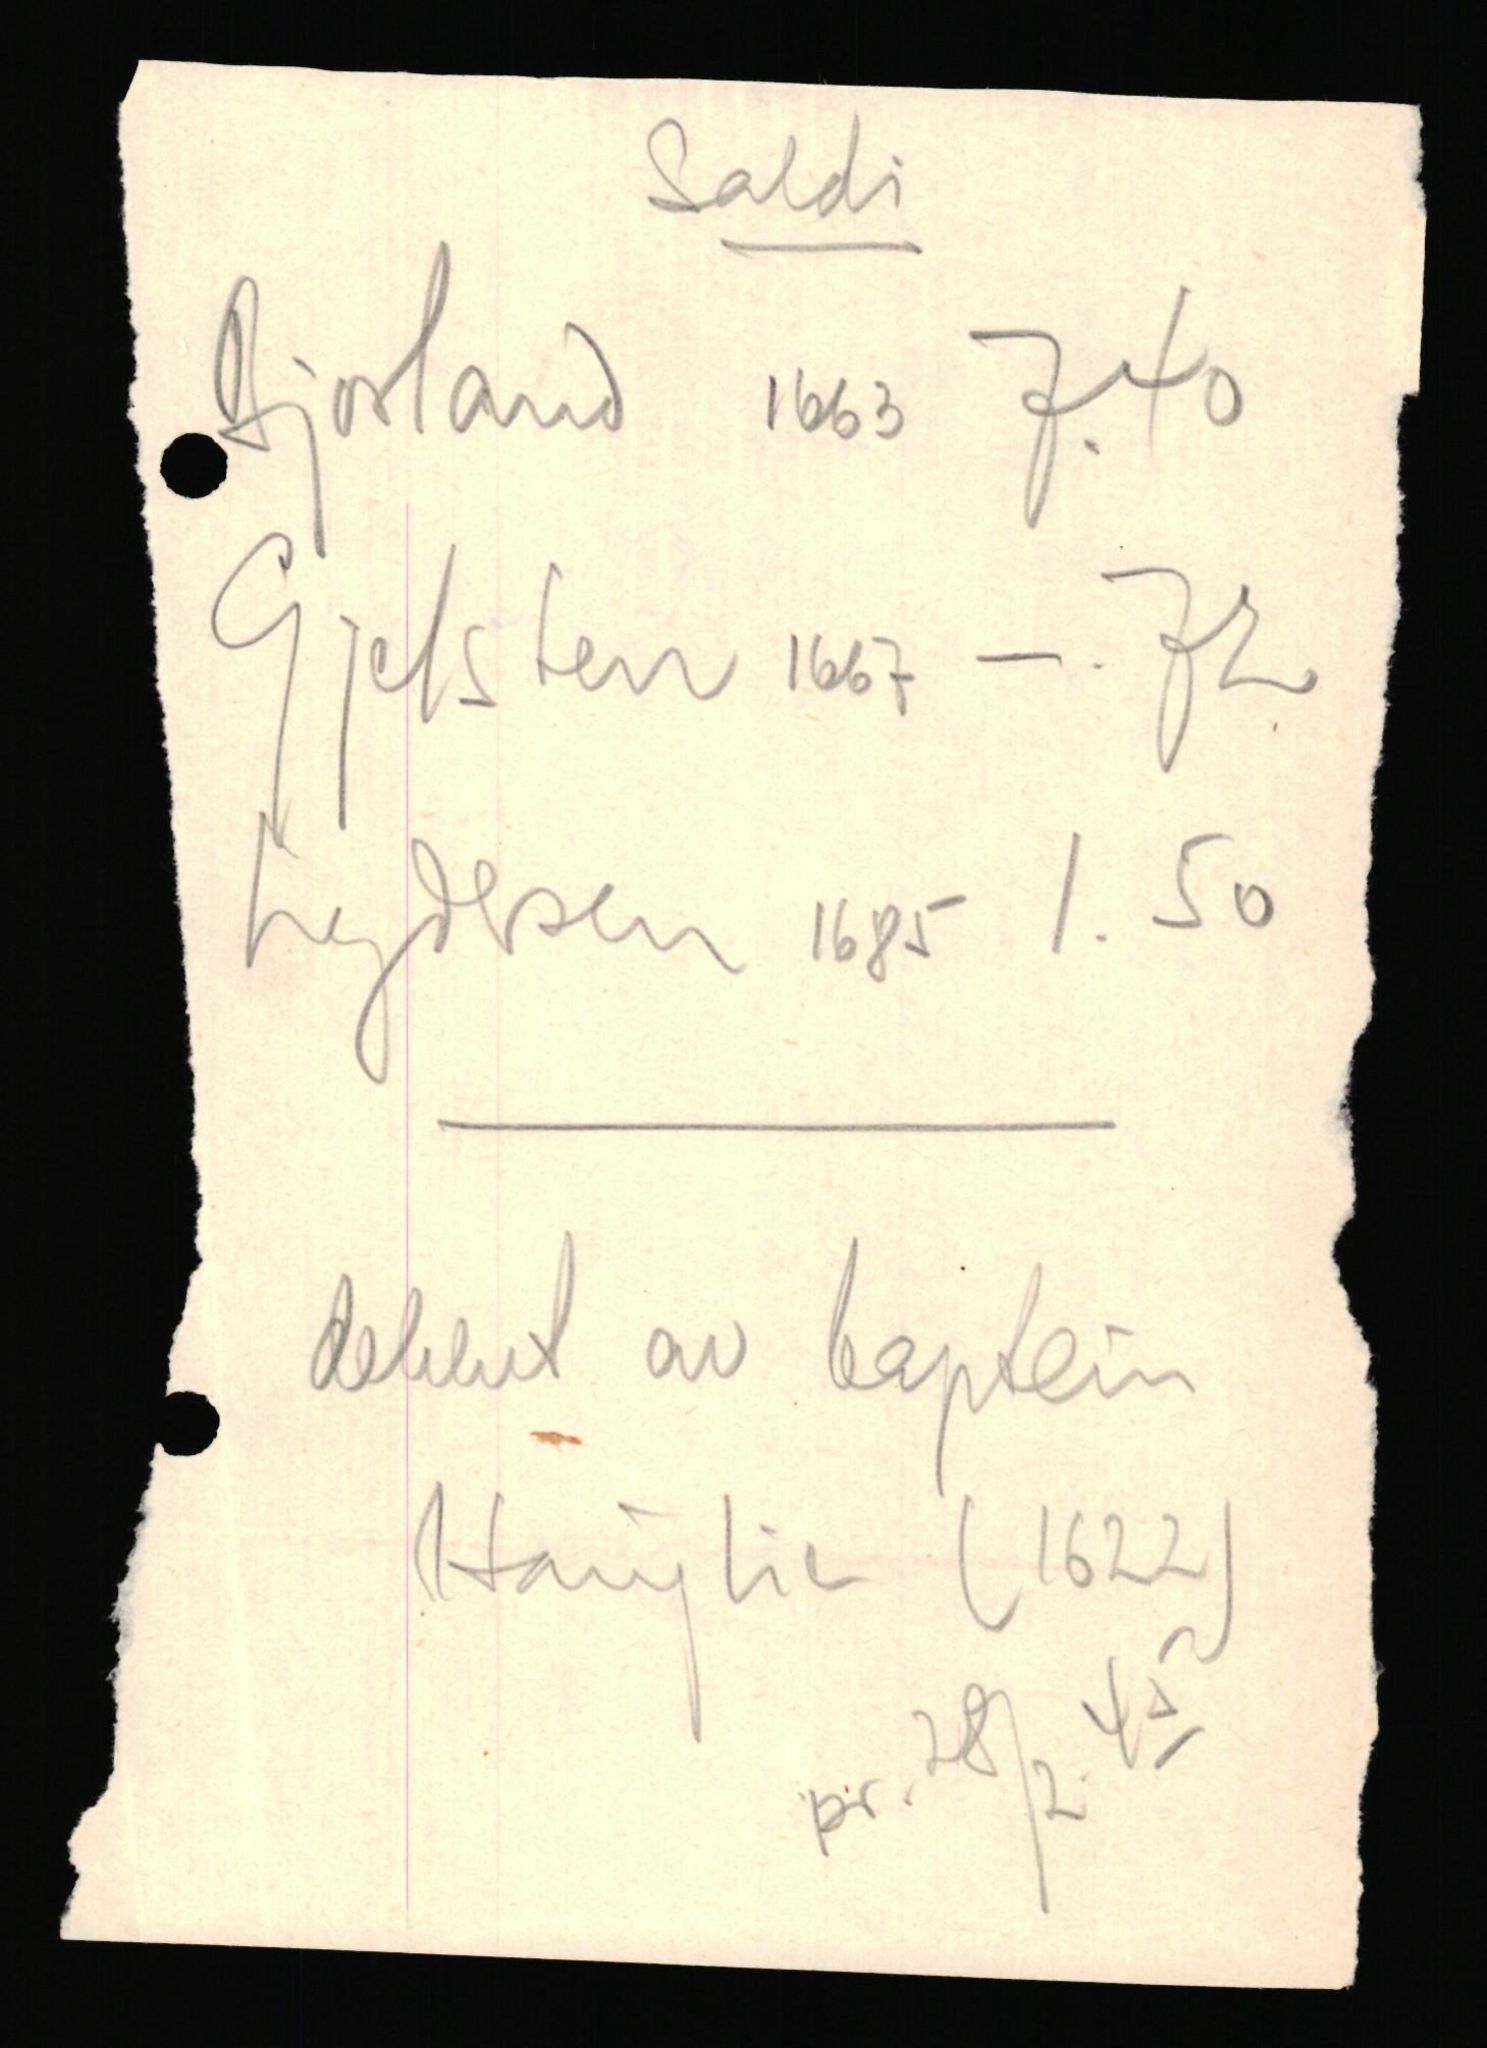 Saldi
Bjorland 1663 7.40
Gjelsten 1667 —.72
Lydersen 1685 1.50
dekket av kaptein
(1622)
pr. 28/2.45